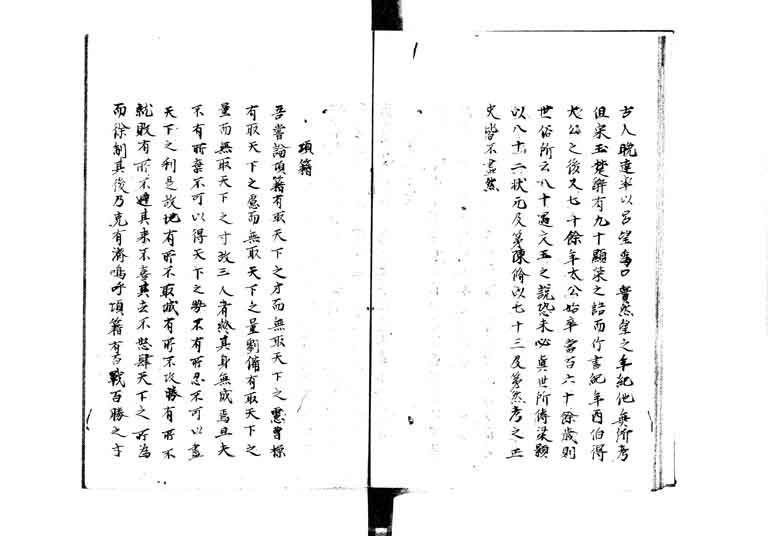 古人晩達率以呂望爲口實然望之年紀他無所考
但宋玉楚辭有九十顯榮之語而竹書紀年西伯得
太公之後又七十餘年太公始卒當百六十餘歲則
世俗所云八十遇文王之說恐未必真世所傳梁顥
以八十二狀元及第陳脩以七十三及第然考之正
史皆不盡然
項籍
吾嘗論項籍有取天下之才而無取天下之慮曹操
有取天下之慮而無取天下之量劉備有取天下之
量而無取天下之才故三人者終其身無成焉且夫
不有所棄不可以得天下之勢不有所忍不可以盡
天下之利是故地有所不取城有所不攻勝有所不
就敗有所不避其來不喜其去不怒肆天下之所為
而徐制其後乃克有濟嗚呼項籍有百戰百勝之才